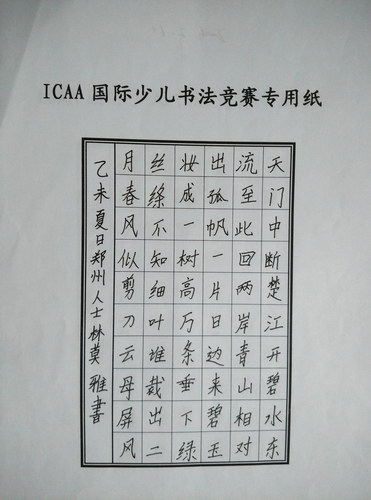 ICAA 国际少儿书法竞赛专用纸
天门中断楚江开碧水东
流至此回两岸青山相对
出孤帆一片日边来碧玉
妆成一树高万条垂下绿
丝绦不知细叶堆裁出二
月春风似剪刀云母屏风
乙未夏日郑州人士林莫雅書